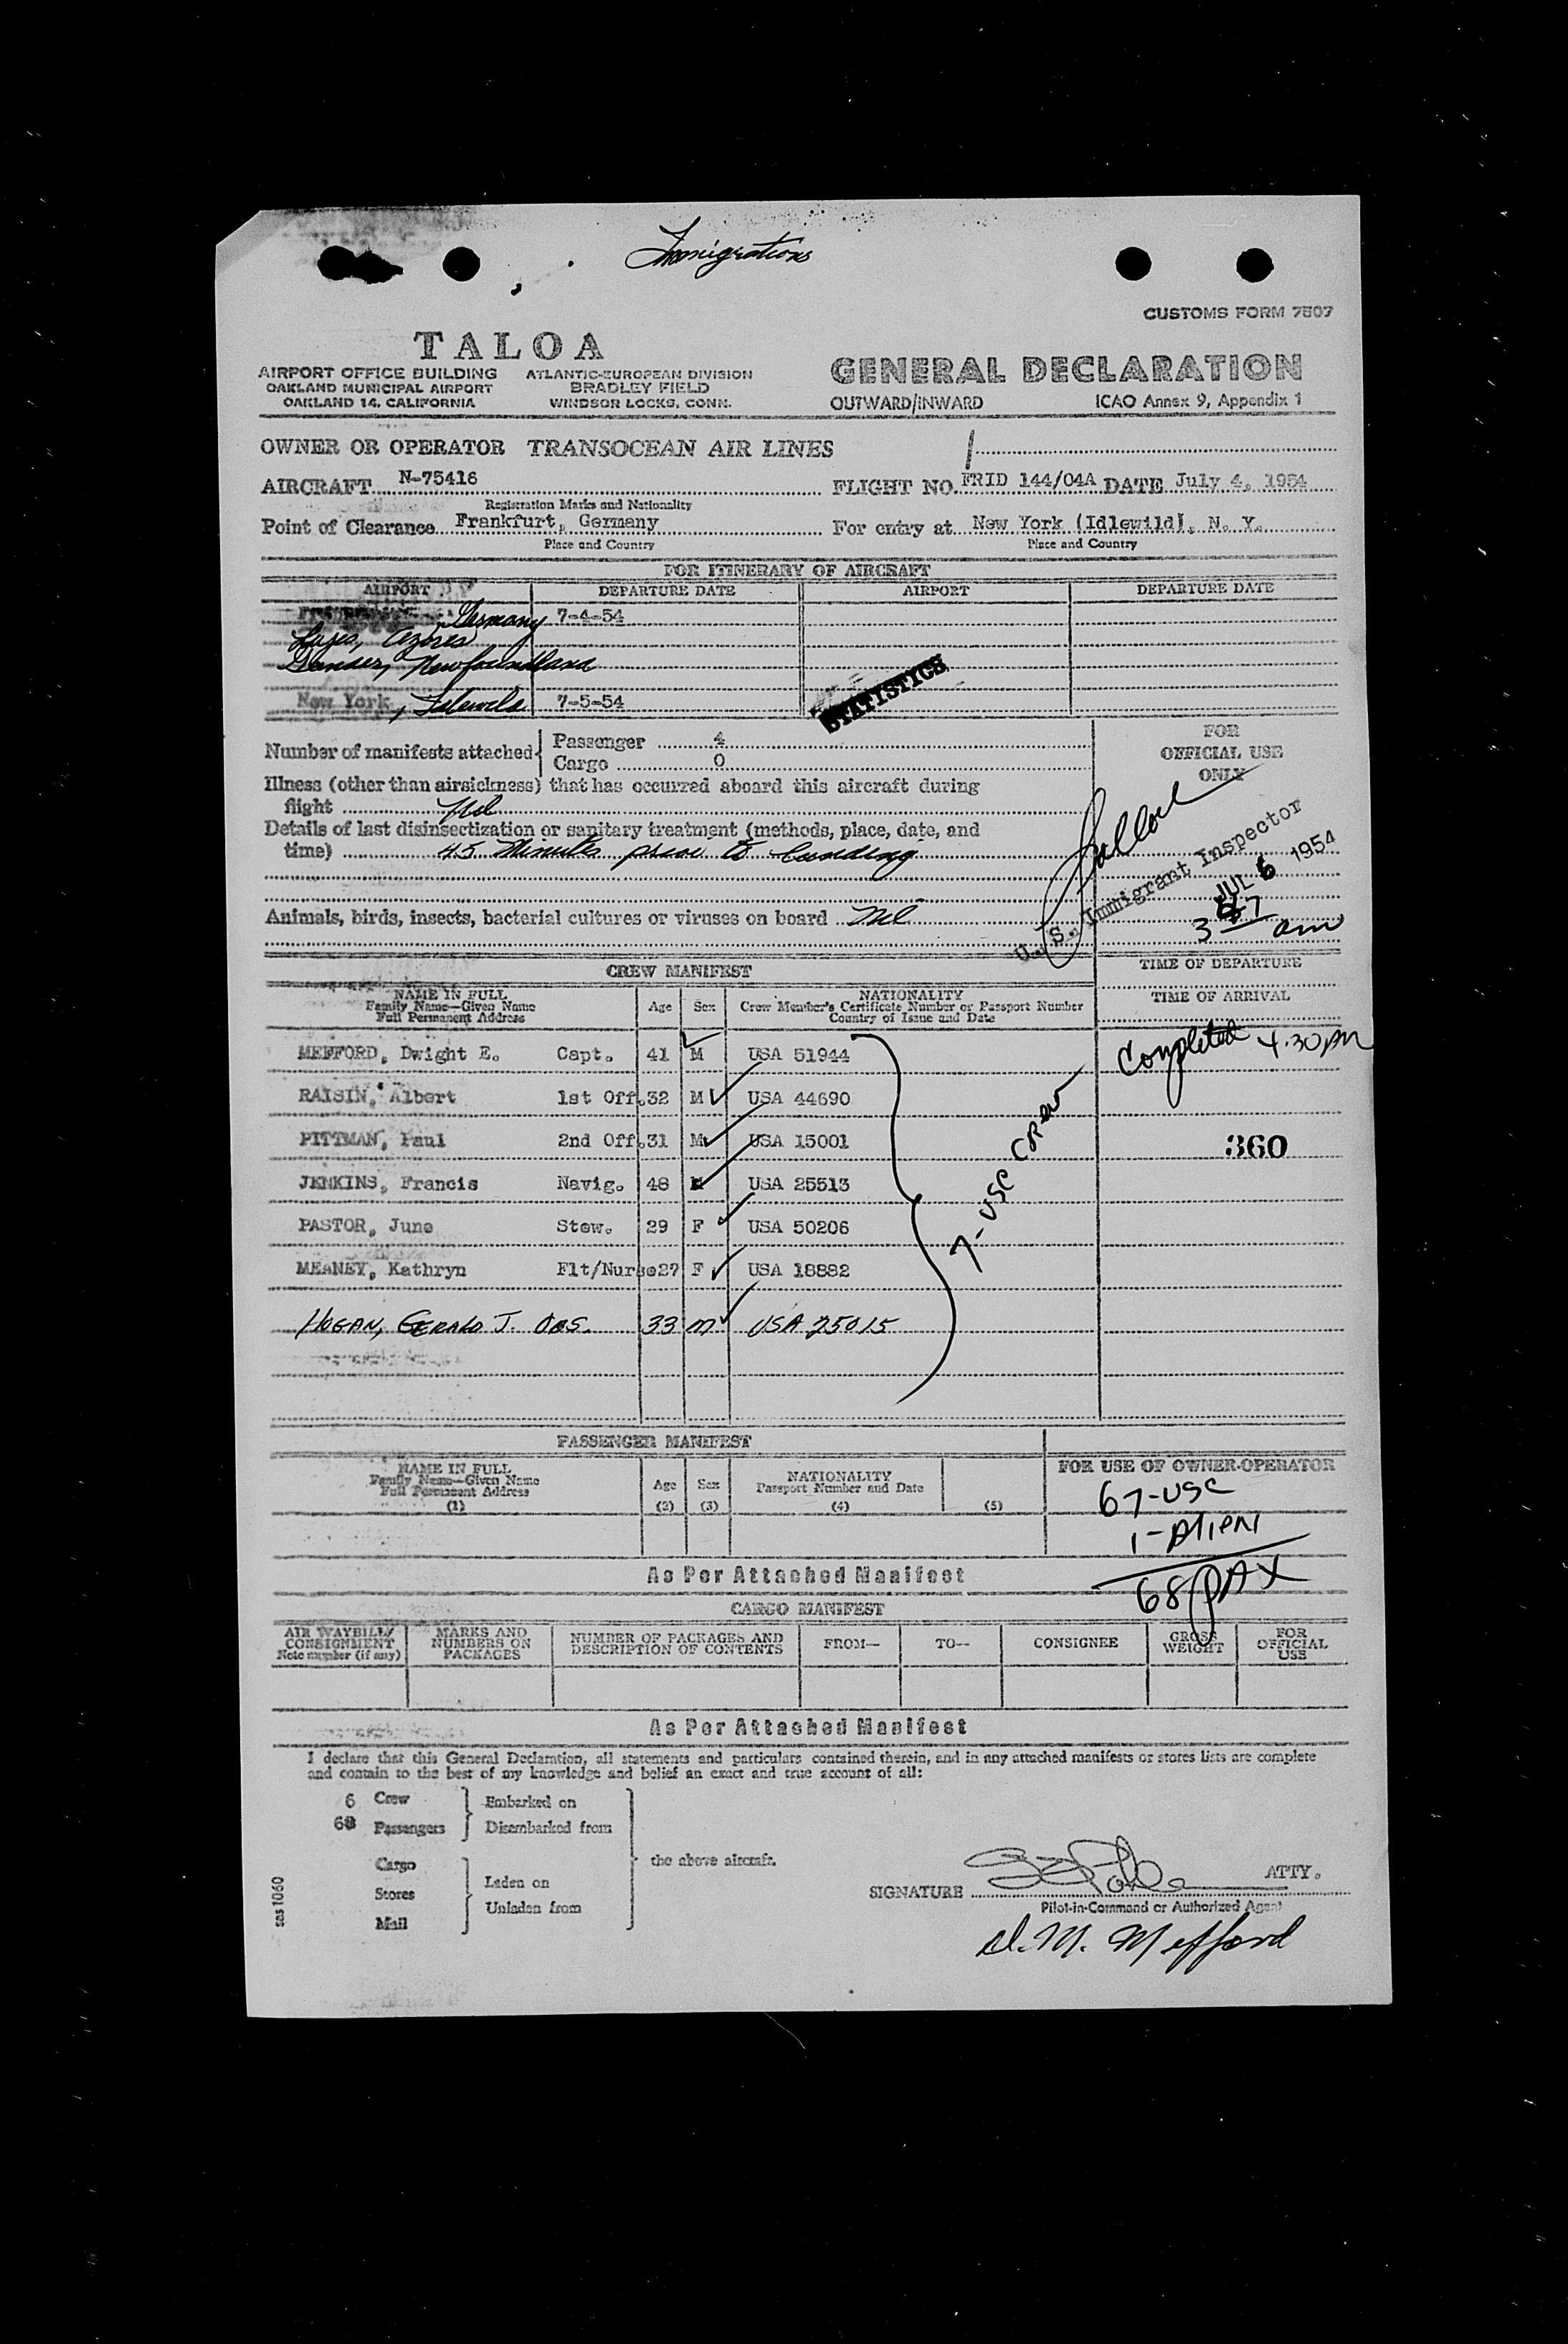 Immigrations
CUSTOMS FORM 7507
TALOA
AIRPORT OFFICE BUILDING
OAKLAND MUNICIPAL AIRPORT
OAKLAND 14, CALIFORNIA
ATLANTIC-EUROPEAN DIVISION
BRADLEY FIELD
WINDSOR LOCKS, CONN.
GENERAL DECLARATION
OUTWARD/INWARD ICAO Annex 9, Appendix 1
OWNER OR OPERATOR TRANSOCEAN AIR LINES
AIRCRAFT N-75416 FLIGHT NO. FRID 144/04A DATE July 4, 1954
Registration Marks and Nationality
Point of Clearance Frankfurt, Germany For entry at New York (Idlewild), N. Y.
Place and Country Place and Country
FOR ITINERARY OF AIRCRAFT
AIRPORT DEPARTURE DATE AIRPORT DEPARTURE DATE
Germany 7-4-54
Lajes, Azores
Gander, Newfoundland
New York, 7-5-54
STATISTICS
Number of manifests attached Passenger 4
Cargo 0
FOR
OFFICIAL USE
ONLY
Illness (other than airsickness) that has occurred aboard this aircraft during
flight Nil
Details of last disinsectization or sanitary treatment (methods, place, date, and
time) 45 Minutes prior to landing
Animals, birds, insects, bacterial cultures or viruses on board Nil
U. S. Immigrant Inspector
JUL 6 1954
am
TIME OF DEPARTURE
TIME OF ARRIVAL
Completed 4:30 AM
360
CREW MANIFEST
NAME IN FULL
Family Name—Given Name
Full Permanent Address
Age Sex
NATIONALITY
Crew Member's Certificate Number or Passport Number
Country of Issue and Date
MEFFORD, Dwight E. Capt. 41 M USA 51944
RAISIN, Albert 1st Off. 32 M USA 44690
PITTMAN, Paul 2nd Off. 31 M USA 15001
JENKINS, Francis Navig. 48 M USA 25513
PASTOR, June Stew. 29 F USA 50206
MEANEY, Kathryn Flt/Nurse 27 F USA 18882
HOGAN, GERALD J. OBS. 33 M USA 25015
7-USC CREW
PASSENGER MANIFEST
NAME IN FULL
Family Name—Given Name
Full Permanent Address
(1)
Age
(2)
Sex
(3)
NATIONALITY
Passport Number and Date
(4)
(5)
FOR USE OF OWNER-OPERATOR
67-USC
1-Alien
68 PAX
As Per Attached Manifest
CARGO MANIFEST
AIR WAYBILL/
CONSIGNMENT
Note number (if any)
MARKS AND
NUMBERS ON
PACKAGES
NUMBER OF PACKAGES AND
DESCRIPTION OF CONTENTS
FROM—
TO--
CONSIGNEE
GROSS
WEIGHT
FOR
OFFICIAL
USE
As Per Attached Manifest
I declare that this General Declaration, all statements and particulars contained therein, and in any attached manifests or stores lists are complete
and contain to the best of my knowledge and belief an exact and true account of all:
6 Crew Embarked on
68 Passengers Disembarked from
the above aircraft.
Cargo
Stores
Mail
Laden on
Unladen from
sas 1060
SIGNATURE ATTY.
Pilot-in-Command or Authorized Agent
Mefford